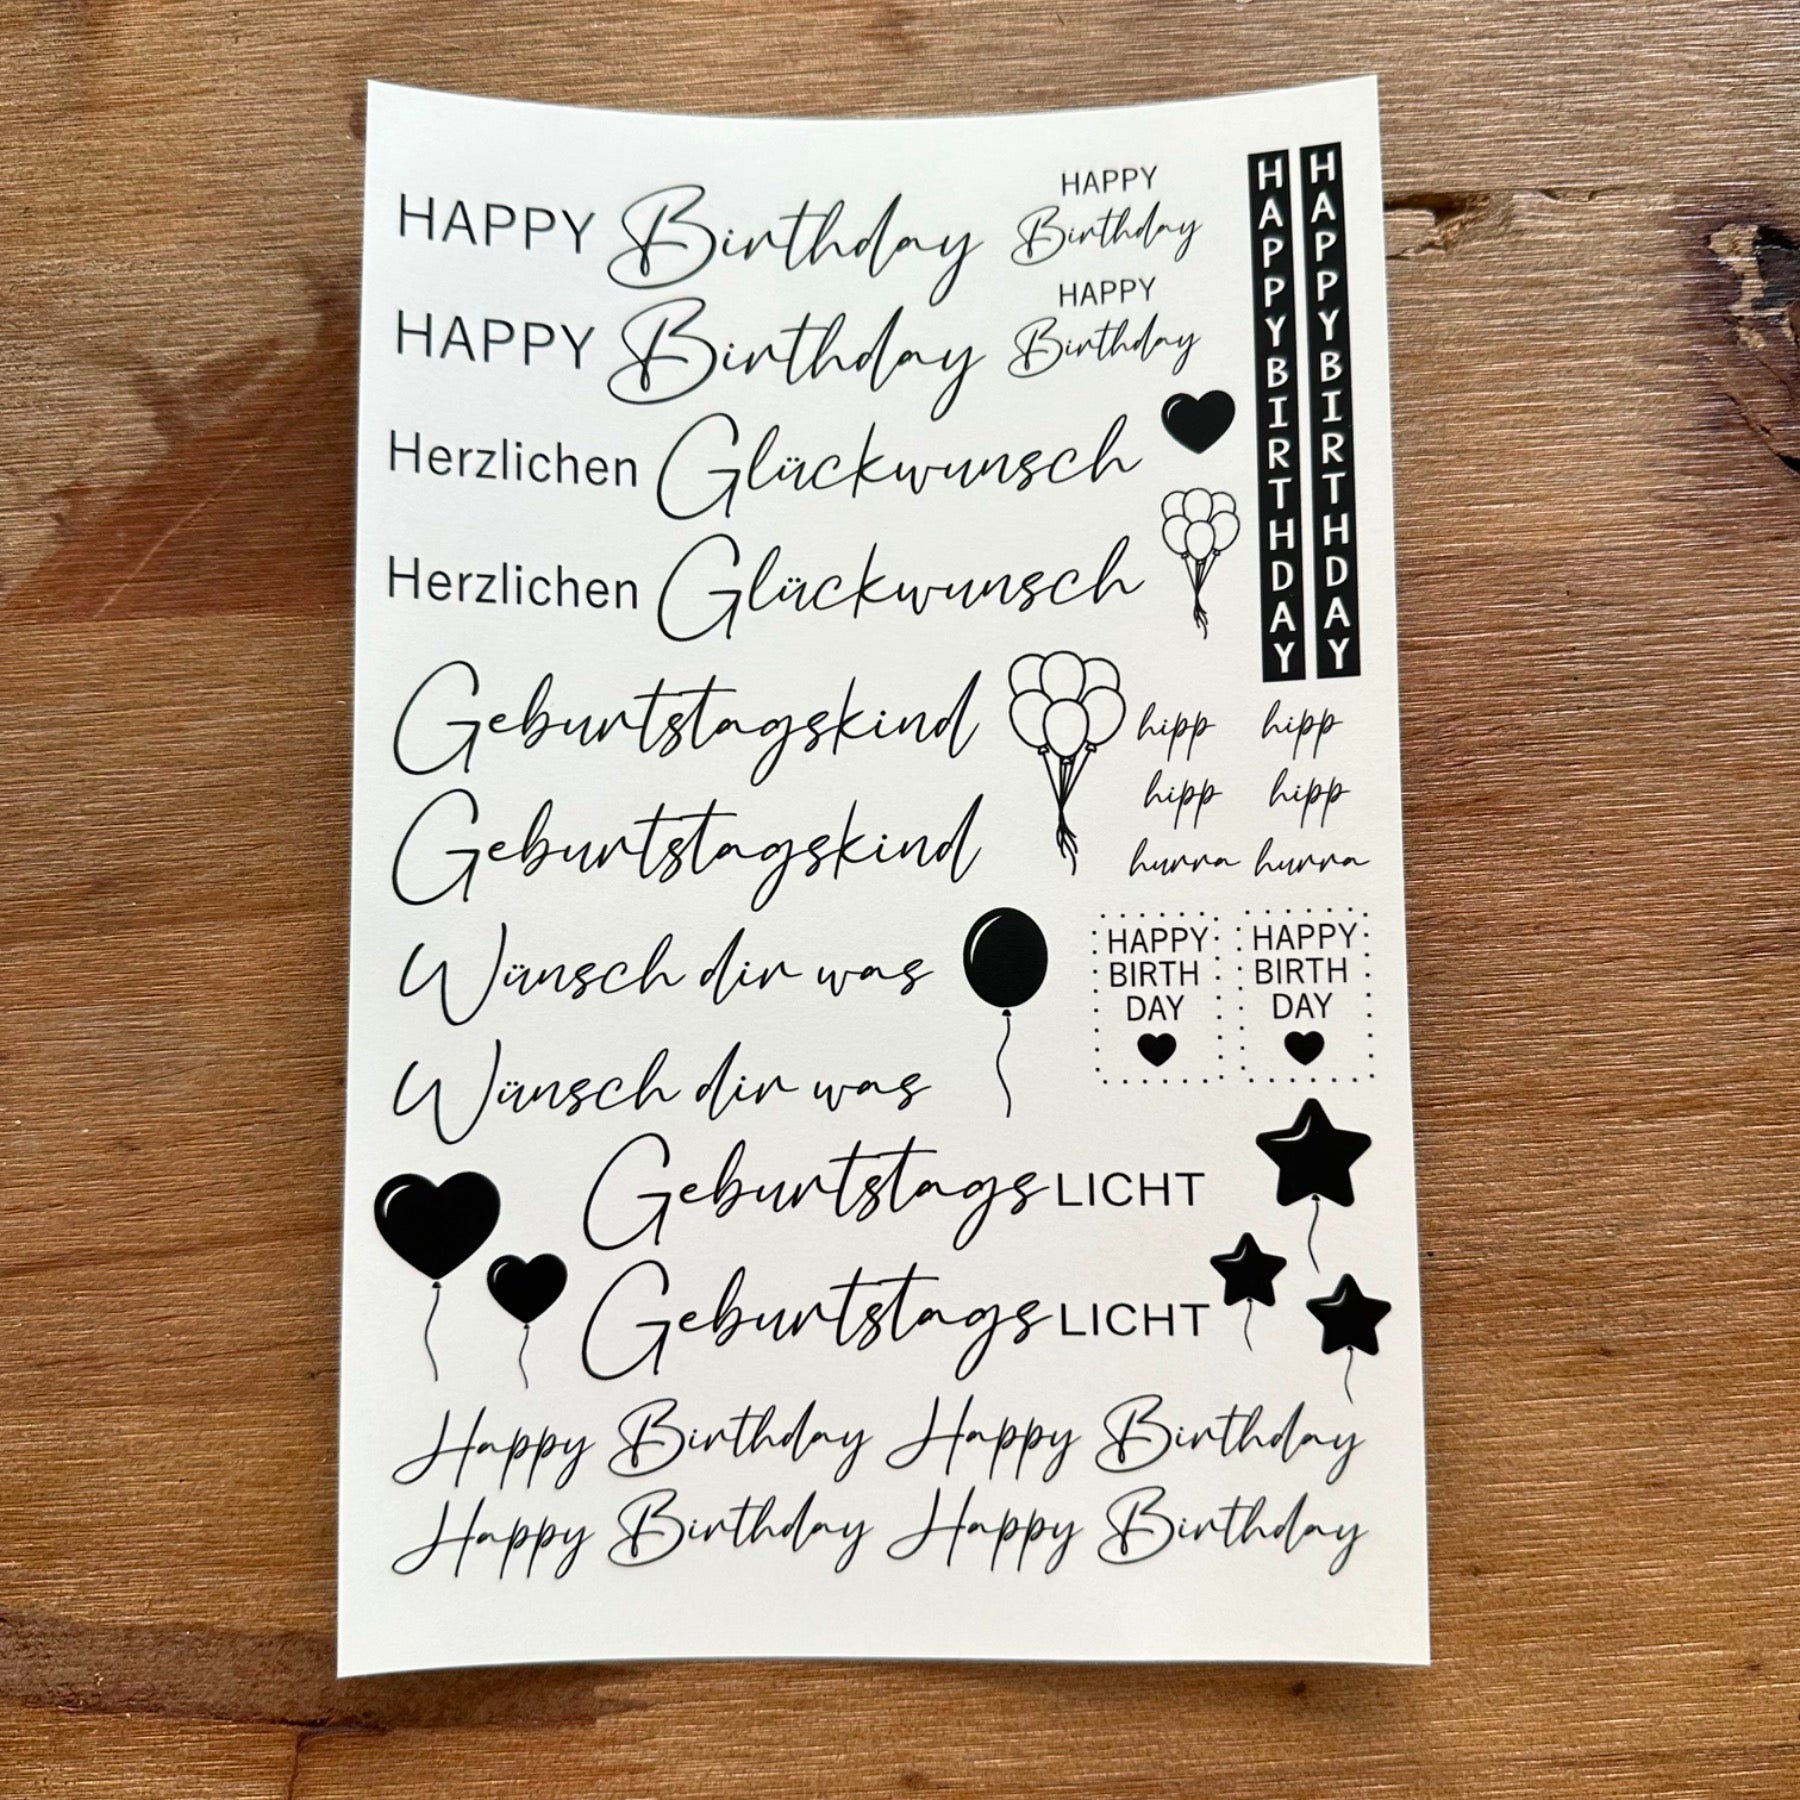 HAPPY Birthday
HAPPY Birthday
HAPPY
Birthday
HAPPY
Birthday
HAPPYBIRTHDAY
HAPPYBIRTHDAY
Herzlichen Glückwunsch
Herzlichen Glückwunsch
Geburtstagskind
Geburtstagskind
hipp
hipp
hurra
hipp
hipp
hurra
Wünsch dir was
Wünsch dir was
HAPPY
BIRTH
DAY
HAPPY
BIRTH
DAY
GeburtstagsLICHT
GeburtstagsLICHT
Happy Birthday Happy Birthday
Happy Birthday Happy Birthday